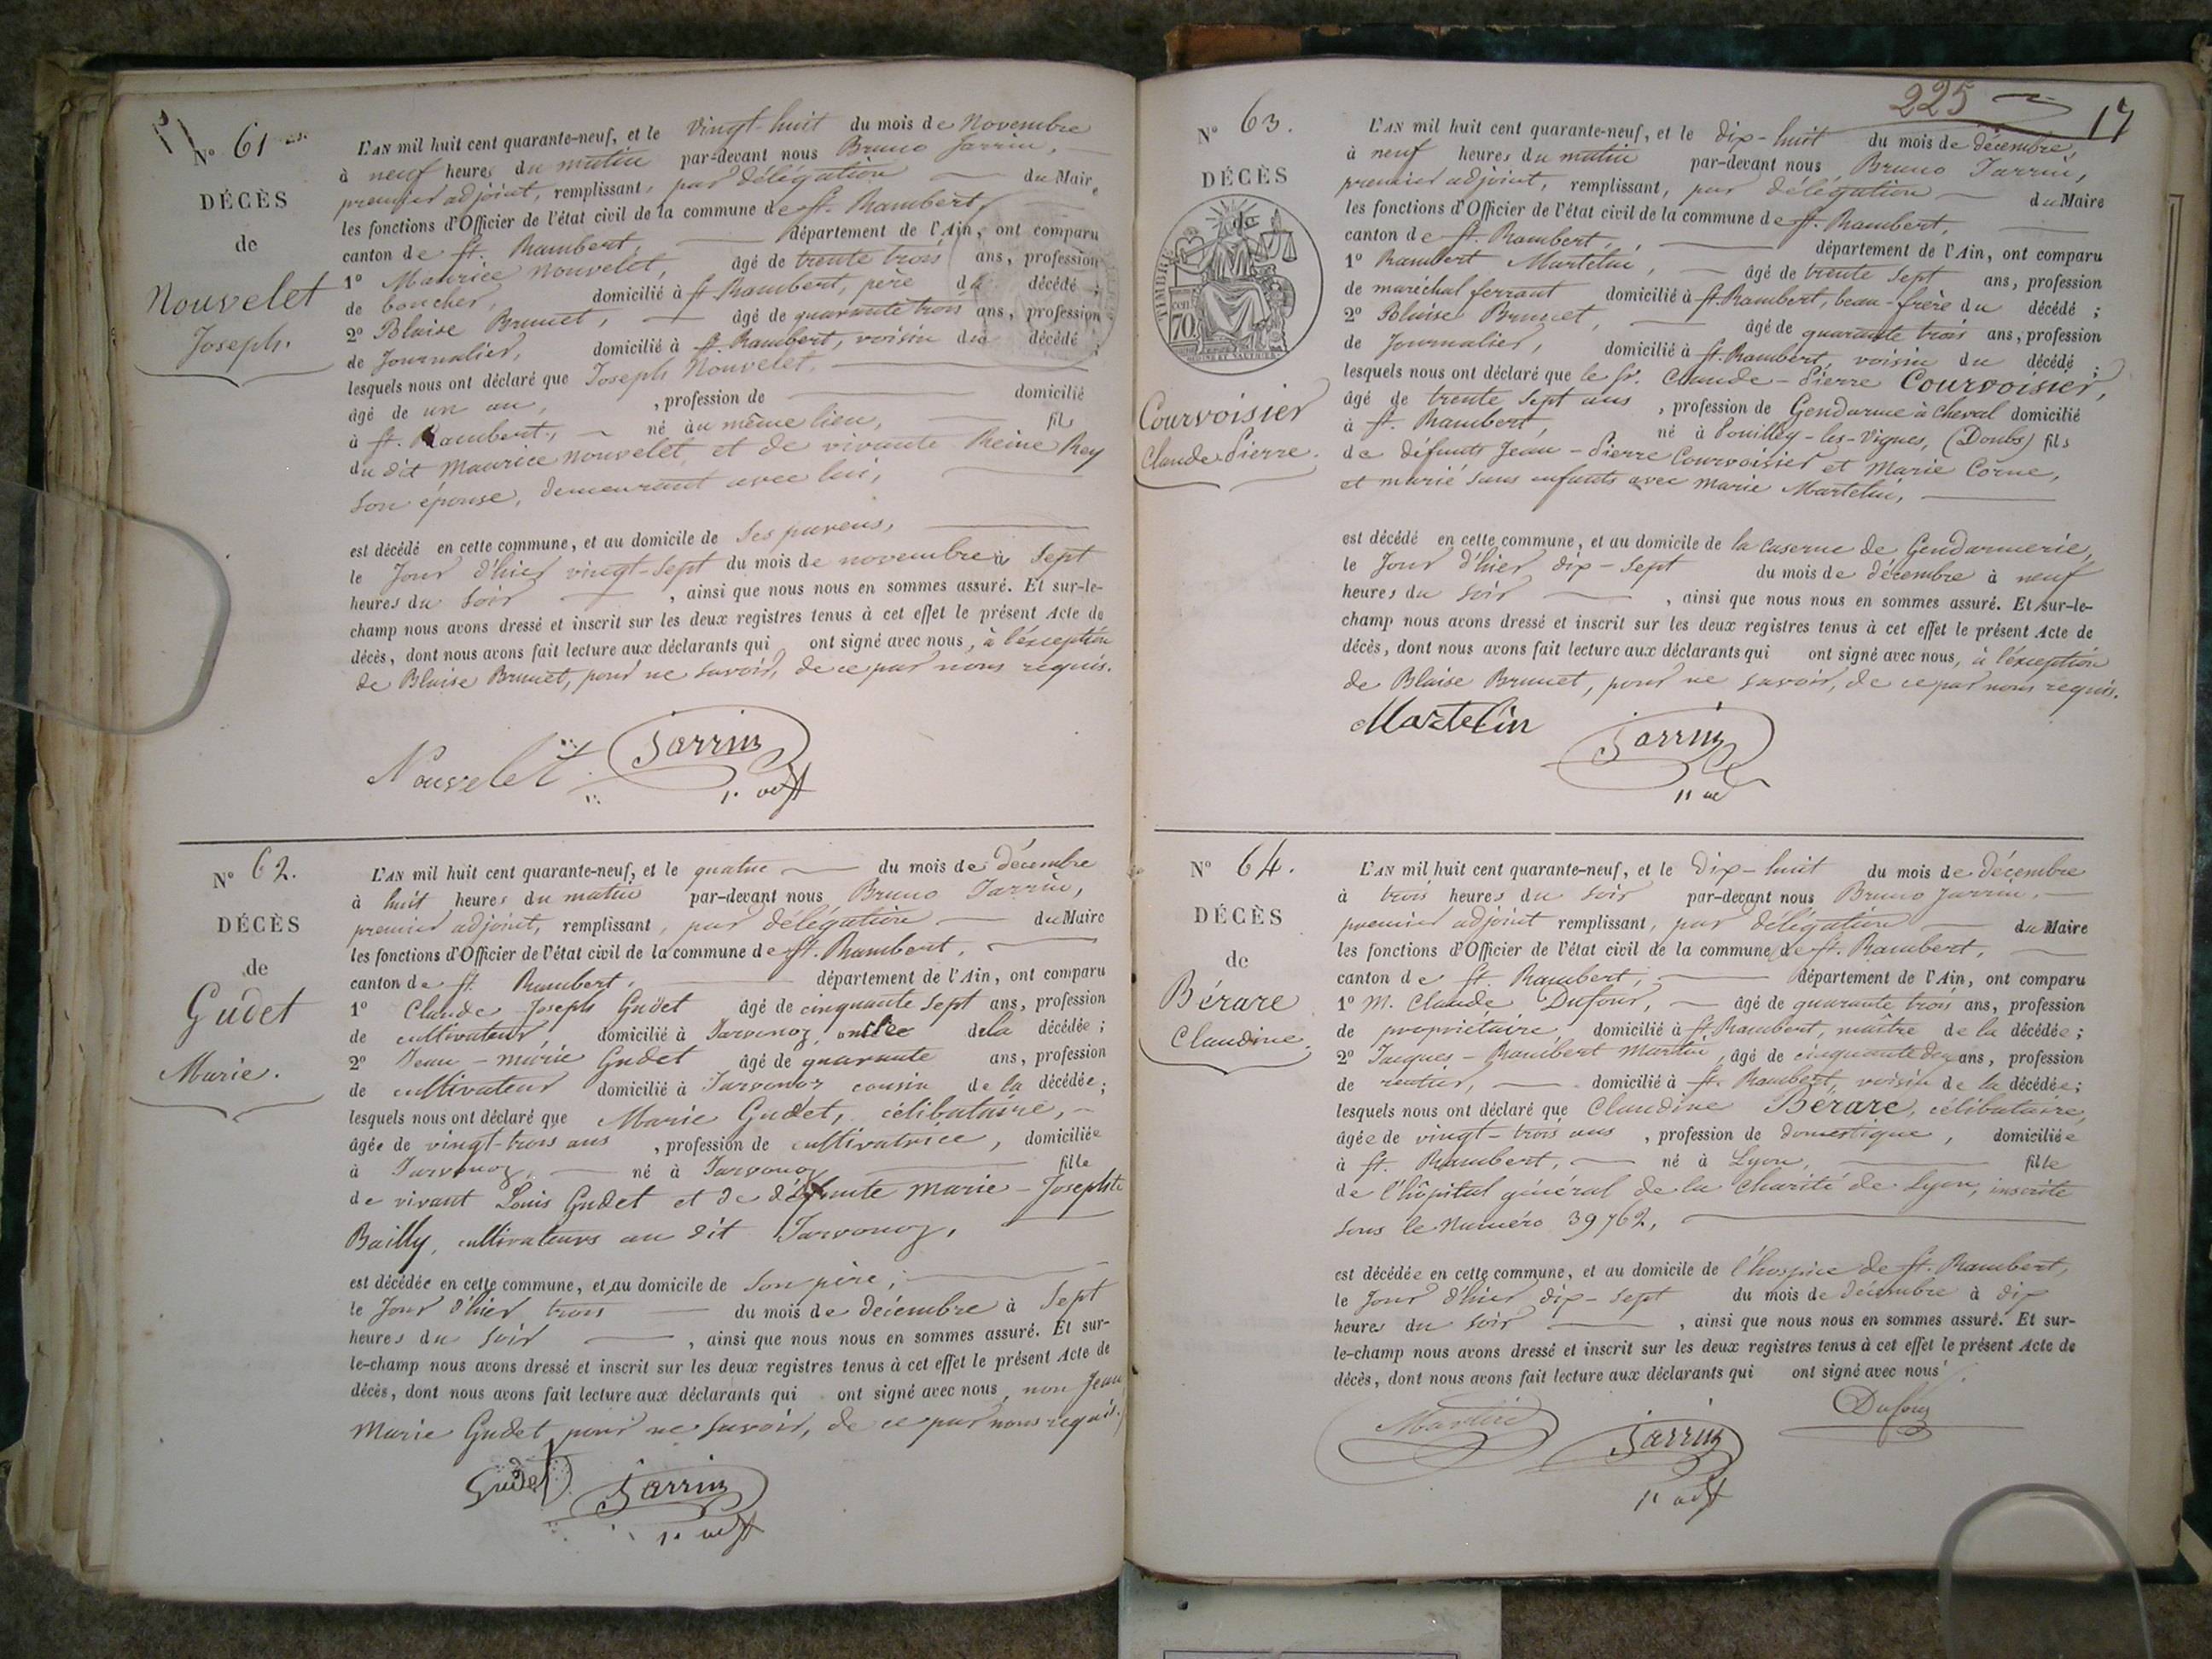 N° 61
DÉCÈS
de
Nouvelet
Joseph.
L'AN mil huit cent quarante-neuf, et le vingt-huit du mois de Novembre
à neuf heures du matin par-devant nous Bruno Jarrin,
premier adjoint, remplissant, par délégation du Maire
les fonctions d'Officier de l'état civil de la commune de St. Rambert,
canton de St. Rambert, département de l'Ain, ont comparu
1° Maurice Nouvelet, âgé de trente trois ans, profession
de boucher, domicilié à St Rambert, père du décédé ;
2° Blaise Brunet, âgé de quarante trois ans, profession
de Journalier, domicilié à St. Rambert, voisin du décédé ;
lesquels nous ont déclaré que Joseph Nouvelet,
âgé de un an, , profession de domicilié
à St. Rambert, né au même lieu, fils
du dit Maurice Nouvelet et de vivante Reine Rey
son épouse, demeurant avec lui,
est décédé en cette commune, et au domicile de ses parens,
le Jour d'hier vingt-sept du mois de novembre à sept
heures du soir , ainsi que nous nous en sommes assuré. Et sur-le-
champ nous avons dressé et inscrit sur les deux registres tenus à cet effet le présent Acte de
décès, dont nous avons fait lecture aux déclarants qui ont signé avec nous, à l'exception
de Blaise Brunet, pour ne savoir, de ce par nous requis.
Nouvelet Jarrin
1er adjt
N° 62.
DÉCÈS
de
Gudet
Marie.
L'AN mil huit cent quarante-neuf, et le quatre du mois de décembre
à huit heures du matin par-devant nous Bruno Jarrin,
premier adjoint, remplissant, par délégation du Maire
les fonctions d'Officier de l'état civil de la commune de St. Rambert,
canton de St. Rambert, département de l'Ain, ont comparu
1° Claude Joseph Gudet âgé de cinquante sept ans, profession
de cultivateur, domicilié à Javornoz, oncle de la décédée ;
2° Jean-Marie Gudet âgé de quarante ans, profession
de cultivateur domicilié à Javornoz cousin de la décédée ;
lesquels nous ont déclaré que Marie Gudet, célibataire,
âgée de vingt-trois ans , profession de cultivatrice, domiciliée
à Javornoz, né à Javornoz, fille
de vivant Louis Gudet et de défunte Marie-Josephte
Bailly, cultivateurs au dit Javornoz,
est décédée en cette commune, et au domicile de son père,
le Jour d'hier trois du mois de décembre à sept
heures du soir , ainsi que nous nous en sommes assuré. Et sur-
le-champ nous avons dressé et inscrit sur les deux registres tenus à cet effet le présent Acte de
décès, dont nous avons fait lecture aux déclarants qui ont signé avec nous, non Jean
Marie Gudet pour ne savoir, de ce par nous requis.
Gudet Jarrin
1er adjt
225
17
N° 63.
DÉCÈS
de
TIMBRE
70
Courvoisier
Claude Pierre.
L'AN mil huit cent quarante-neuf, et le dix-huit du mois de décembre,
à neuf heures du matin par-devant nous Bruno Jarrin,
premier adjoint, remplissant, par délégation du Maire
les fonctions d'Officier de l'état civil de la commune de St. Rambert,
canton de St. Rambert, département de l'Ain, ont comparu
1° Rambert Martelin, âgé de trente sept ans, profession
de maréchal ferrant domicilié à St Rambert, beau-frère du décédé ;
2° Blaise Brunet, âgé de quarante trois ans, profession
de Journalier, domicilié à St. Rambert, voisin du décédé ;
lesquels nous ont déclaré que le Sr. Claude-Pierre Courvoisier,
âgé de trente sept ans , profession de Gendarme à cheval domicilié
à St. Rambert, né à Pouilley-les-Vignes, (Doubs) fils
de défunts Jean-Pierre Courvoisier et Marie Corne,
et marié sans enfants avec Marie Martelin,
est décédé en cette commune, et au domicile de la caserne de Gendarmerie,
le Jour d'hier dix-sept du mois de décembre à neuf
heures du soir , ainsi que nous nous en sommes assuré. Et sur-le-
champ nous avons dressé et inscrit sur les deux registres tenus à cet effet le présent Acte de
décès, dont nous avons fait lecture aux déclarants qui ont signé avec nous, à l'exception
de Blaise Brunet, pour ne savoir, de ce par nous requis.
Martelin Jarrin
N° 64.
DÉCÈS
de
Bérare
Claudine.
L'AN mil huit cent quarante-neuf, et le Dix-huit du mois de décembre
à trois heures du soir par-devant nous Bruno Jarrin,
premier adjoint remplissant, par délégation du Maire
les fonctions d'Officier de l'état civil de la commune de St. Rambert,
canton de St. Rambert, département de l'Ain, ont comparu
1° M. Claude Dufour, âgé de quarante trois ans, profession
de propriétaire, domicilié à St Rambert, maître de la décédée ;
2° Jacques-Rambert Martin, âgé de cinquante deux ans, profession
de rentier, domicilié à St. Rambert, voisin de la décédée ;
lesquels nous ont déclaré que Claudine Bérare, célibataire,
âgée de vingt-trois ans , profession de domestique, domiciliée
à St. Rambert, né à Lyon, fille
de l'hôpital général de la Charité de Lyon, inscrite
sous le Numéro 39762,
est décédée en cette commune, et au domicile de l'hospice de St. Rambert,
le Jour d'hier dix-sept du mois de décembre à dix
heures du soir , ainsi que nous nous en sommes assuré. Et sur-
le-champ nous avons dressé et inscrit sur les deux registres tenus à cet effet le présent Acte de
décès, dont nous avons fait lecture aux déclarants qui ont signé avec nous
Martin Jarrin Dufour
1er adjt